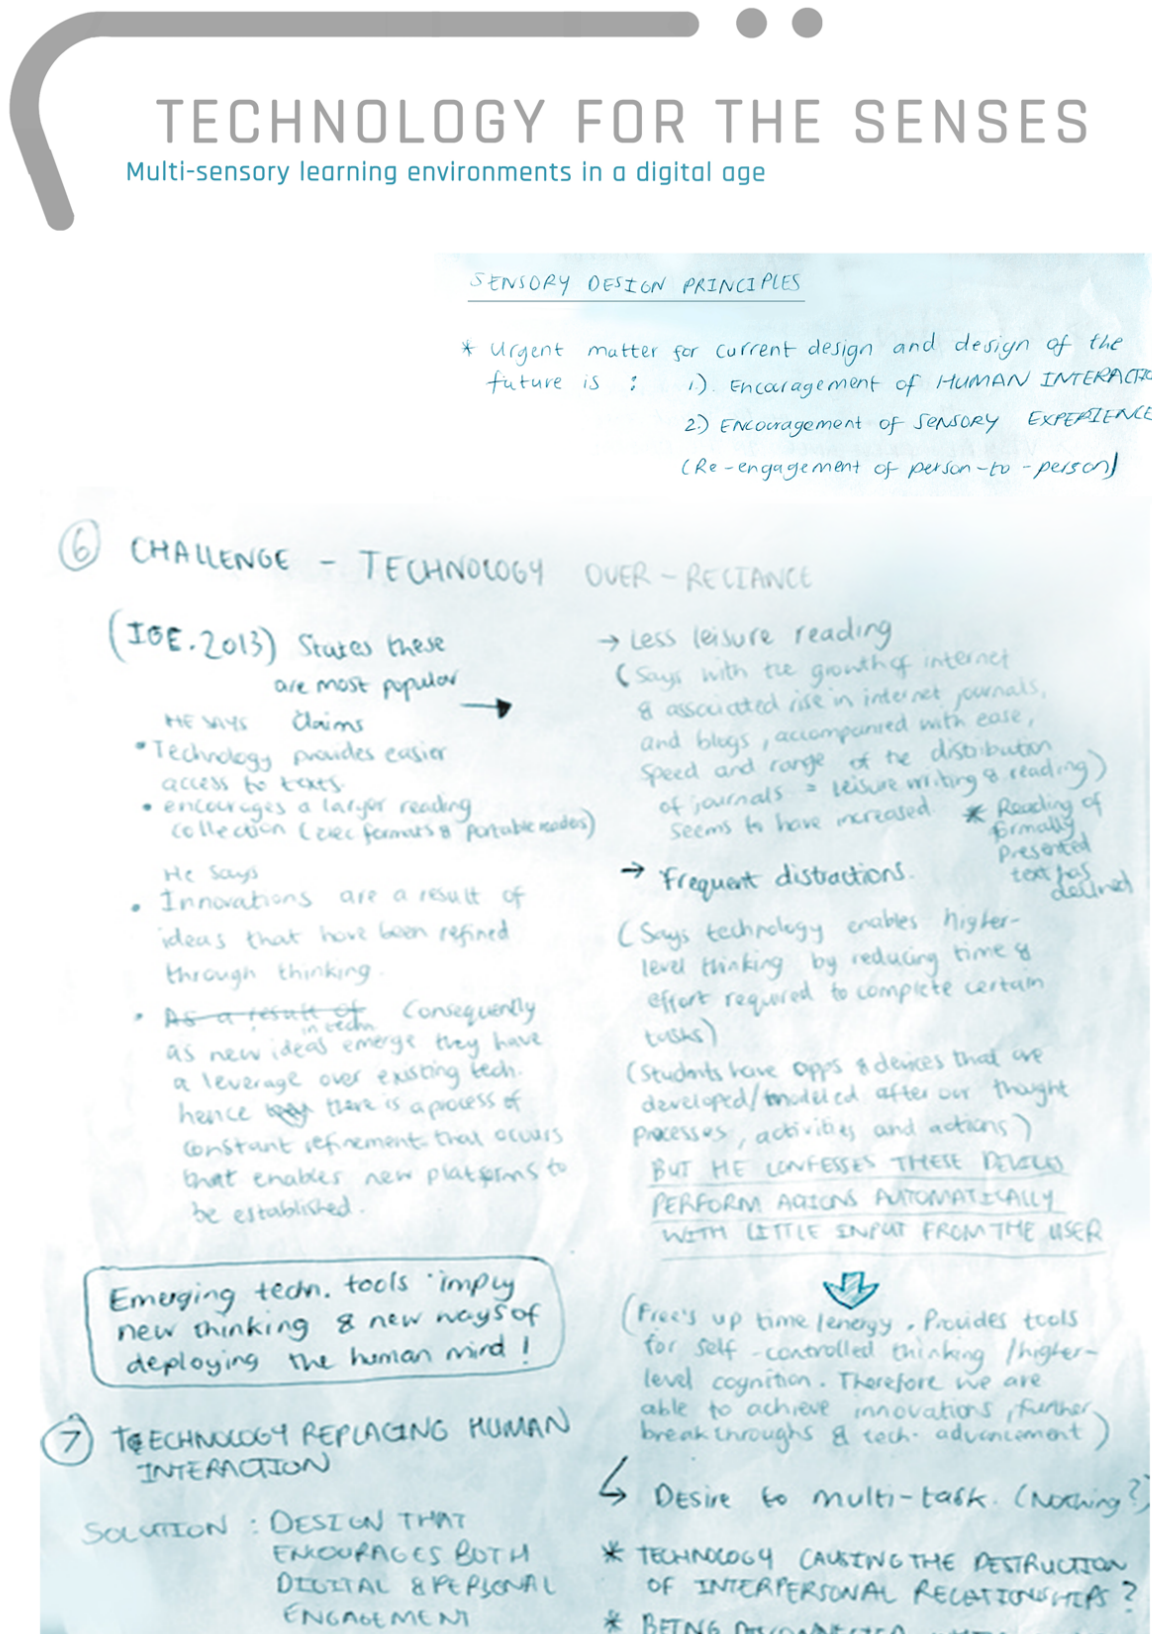 TECHNOLOGY FOR THE SENSES
Multi-sensory learning environments in a digital age
SENSORY DESIGN PRINCIPLES
* Urgent matter for current design and design of the
future is : 1). Encouragement of HUMAN INTERACTIO
2.) Encouragement of SENSORY EXPERIENCE
(Re-engagement of person-to-person)
6 CHALLENGE - TECHNOLOGY OVER-RELIANCE
(IGE.2013) States these
are most popular
HE SAYS Claims
• Technology provides easier
access to texts.
• encourages a larger reading
collection (elec formats & portable reades)
He Says
• Innovations are a result of
ideas that have been refined
through thinking.
• As a result of Consequently
in techn.
as new ideas emerge they have
a leverage over existing tech.
hence there is a process of
constant refinement that occurs
that enables new platforms to
be established.
Emerging techn. tools imply
new thinking & new ways of
deploying the human mind!
7 TECHNOLOGY REPLACING HUMAN
INTERACTION
SOLUTION : DESIGN THAT
ENCOURAGES BOTH
DIGITAL & PERSONAL
ENGAGEMENT
→ Less leisure reading
(Says with the growth of internet
& associated rise in internet journals,
and blogs, accompanied with ease,
speed and range of the distribution
of journals = leisure writing & reading)
seems to have increased.
* Reading of
formally
presented
text has
declined
→ Frequent distractions.
(Says technology enables higher-
level thinking by reducing time &
effort required to complete certain
tasks)
(Students have apps & devices that are
developed/modeled after our thought
processes, activities and actions)
BUT HE CONFESSES THESE DEVICES
PERFORM ACTIONS AUTOMATICALLY
WITH LITTLE INPUT FROM THE USER
(Free's up time/energy. Provides tools
for self-controlled thinking/higher-
level cognition. Therefore we are
able to achieve innovations, further
breakthroughs & tech. advancement)
Desire to multi-task. (Nothing?)
* TECHNOLOGY CAUSING THE DESTRUCTION
OF INTERPERSONAL RELATIONSHIPS?
* BEING DISCONNECTED